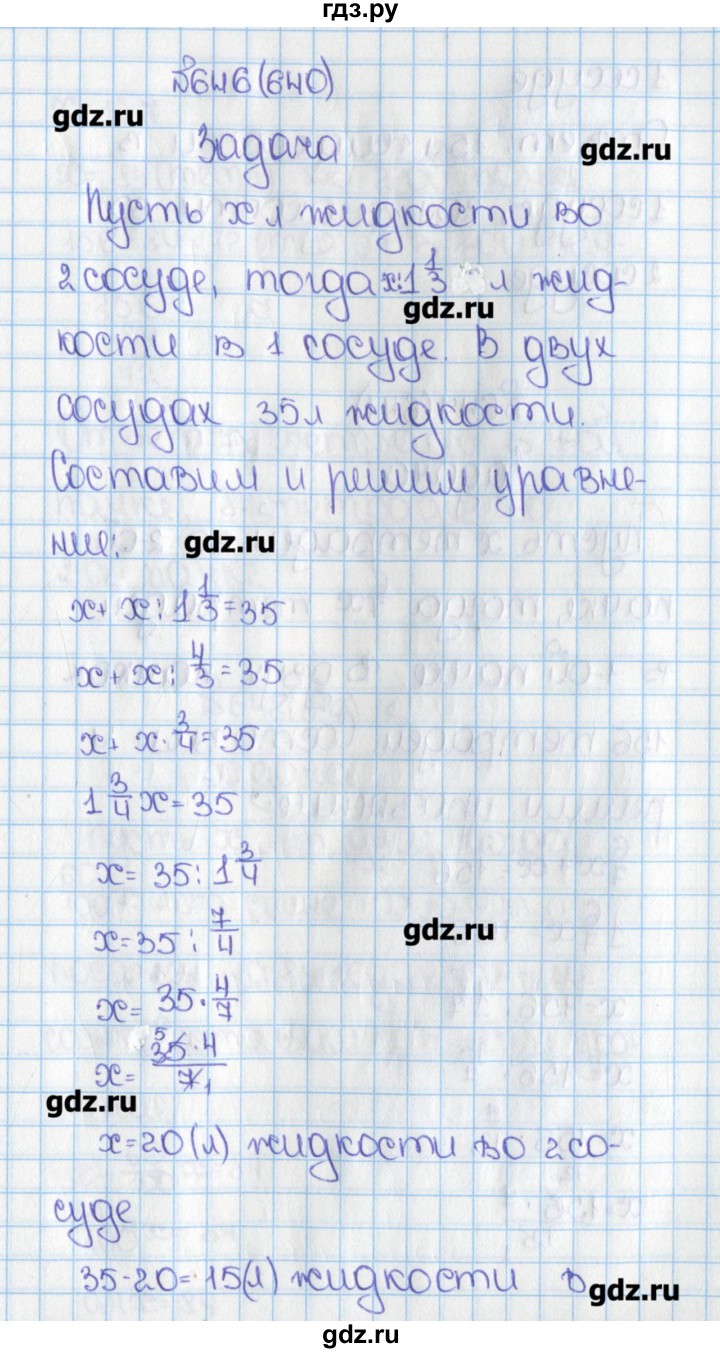 гдз.ру
№646(640)
gdz.ru
Задача
gdz.ru
Пусть x л жидкости во
2 сосуде, тогда x:1 1/3 л жид-
gdz.ru
кости в 1 сосуде. В двух
сосудах 35л жидкости.
Составим и решим уравне-
ние:
gdz.ru
x+ x:1 1/3=35
x+x: 4/3=35
x+ x· 3/4=35
1 3/4 x=35
x= 35:1 3/4
x=35: 7/4
gdz.ru
x= 35· 4/7
x= 35 5·4/7 1
gdz.ru
x=20(л) жидкости во 2 со-
суде
35-20=15(л) жидкости в
gdz.ru
gdz.ru